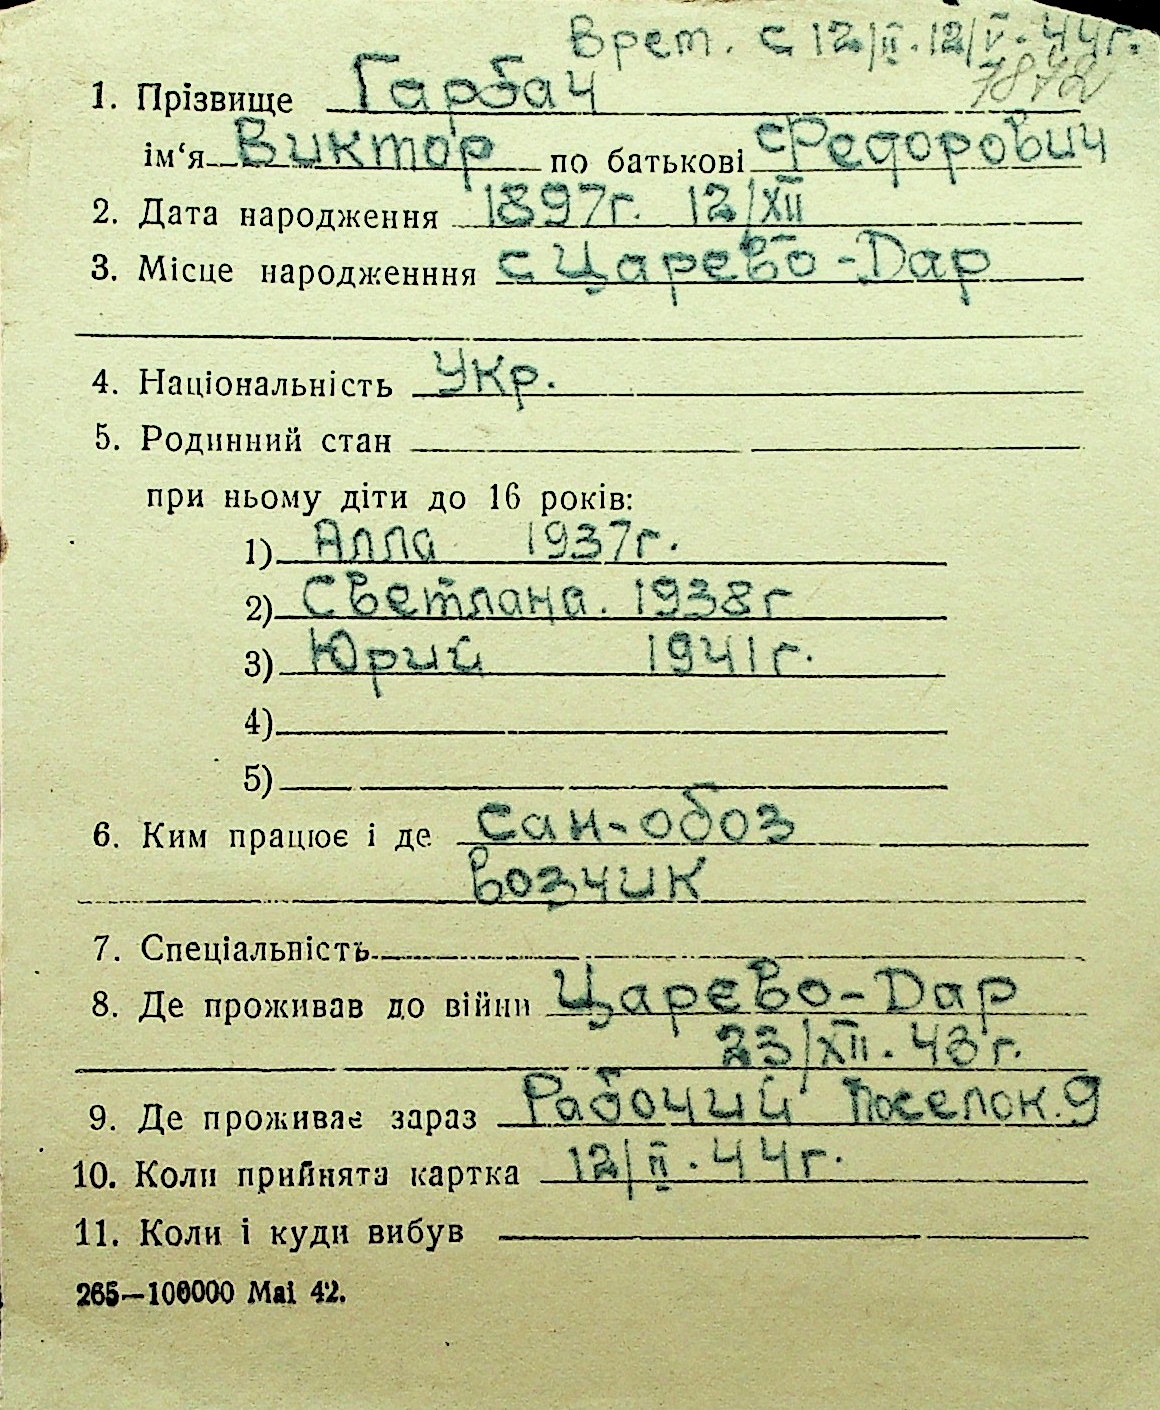 Врем. с 12/II. 12/V. 44г.
7872
1. Прізвище Гарбач
ім‘я Виктор по батькові Федорович
2. Дата народження 1897г. 12/XII
3. Місце народженння с Царево-Дар
4. Національність Укр.
5. Родинний стан
при ньому діти до 16 років:
1) Алла 1937г.
2) Светлана. 1938г
3) Юрий 1941г.
4)
5)
6. Ким працює і де сан-обоз
возчик
7. Спеціальність
8. Де проживав до війни Царево-Дар
23/XII. 43г.
9. Де проживає зараз Рабочий поселок. 9
10. Коли прийнята картка 12/II. 44г.
11. Коли і куди вибув
265—100000 Mai 42.